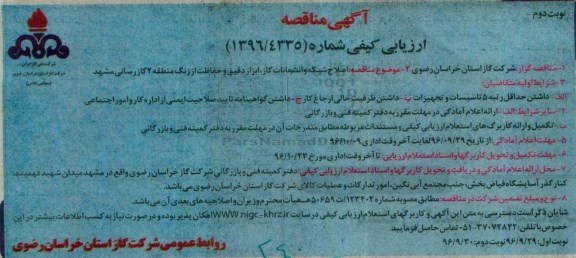 نوبت دوم
آگهی مناقصه
ارزیابی کیفی شماره (۱۳۹۶/۴۳۳۵)
شرکت ملی گاز ایران
۱- مناقصه گزار: شرکت گاز استان خراسان رضوی ۲- موضوع مناقصه: اصلاح شبکه و انشعابات گاز، ابزار دقیق و حفاظت از زنگ منطقه ۲ گازرسانی مشهد
۳- شرایط اولیه متقاضیان:
الف- داشتن حداقل رتبه ۵ تاسیسات و تجهیزات ب- داشتن ظرفیت خالی ارجاع کار ج- داشتن گواهینامه تایید صلاحیت ایمنی از اداره کار و امور اجتماعی
۴- سایر شرایط: الف- ارائه اعلام آمادگی در مهلت مقرر به دفتر کمیته فنی و بازرگانی
ب- تکمیل و ارائه کاربرگ های استعلام ارزیابی کیفی و مستندات مربوطه مطابق مندرجات آن در مهلت مقرر به دفتر کمیته فنی و بازرگانی
۵- مهلت اعلام آمادگی: از تاریخ ۹۶/۰۹/۲۹ لغایت آخر وقت اداری ۹۶/۱۰/۰۹
۶- مهلت تکمیل و تحویل کاربرگها و اسناد استعلام ارزیابی: تا آخر وقت اداری مورخ ۹۶/۱۰/۲۳
۷- محل ارائه اعلام آمادگی و دریافت و تحویل کاربرگها و اسناد استعلام ارزیابی کیفی: دفتر کمیته فنی و بازرگانی شرکت گاز خراسان رضوی واقع در مشهد میدان شهید فهمیده
کنار گذر آسایشگاه فیاض بخش، جنب مجتمع آبی نگین، امور تدارکات و عملیات کالای شرکت گاز استان خراسان رضوی می باشد.
۸- نوع و مبلغ تضمین شرکت در مناقصه: مطابق مصوبه شماره ۱۲۳۴۰۲/ت۵۰۶۵۹هـ هیأت محترم وزیران و اصلاحیه های بعدی آن می باشد.
شایان ذکر است دسترسی به متن این آگهی و کاربرگهای استعلام ارزیابی کیفی در سایت WWW.nigc-khrz.ir امکان پذیر بوده و در صورت نیاز به کسب اطلاعات بیشتر در این
خصوص با تلفن: ۳۷۰۷۲۸۲۲-۰۵۱ تماس حاصل فرمایید.
نوبت اول: ۹۶/۹/۲۹ نوبت دوم: ۹۶/۹/۳۰
روابط عمومی شرکت گاز استان خراسان رضوی